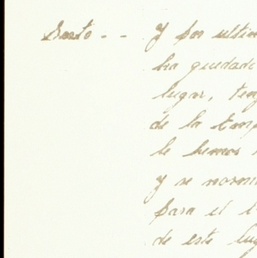 Santo - - Y por ultim
ha quedado
lugar, ten
de la temp
le hemos
y se norm
para el t
de este lug